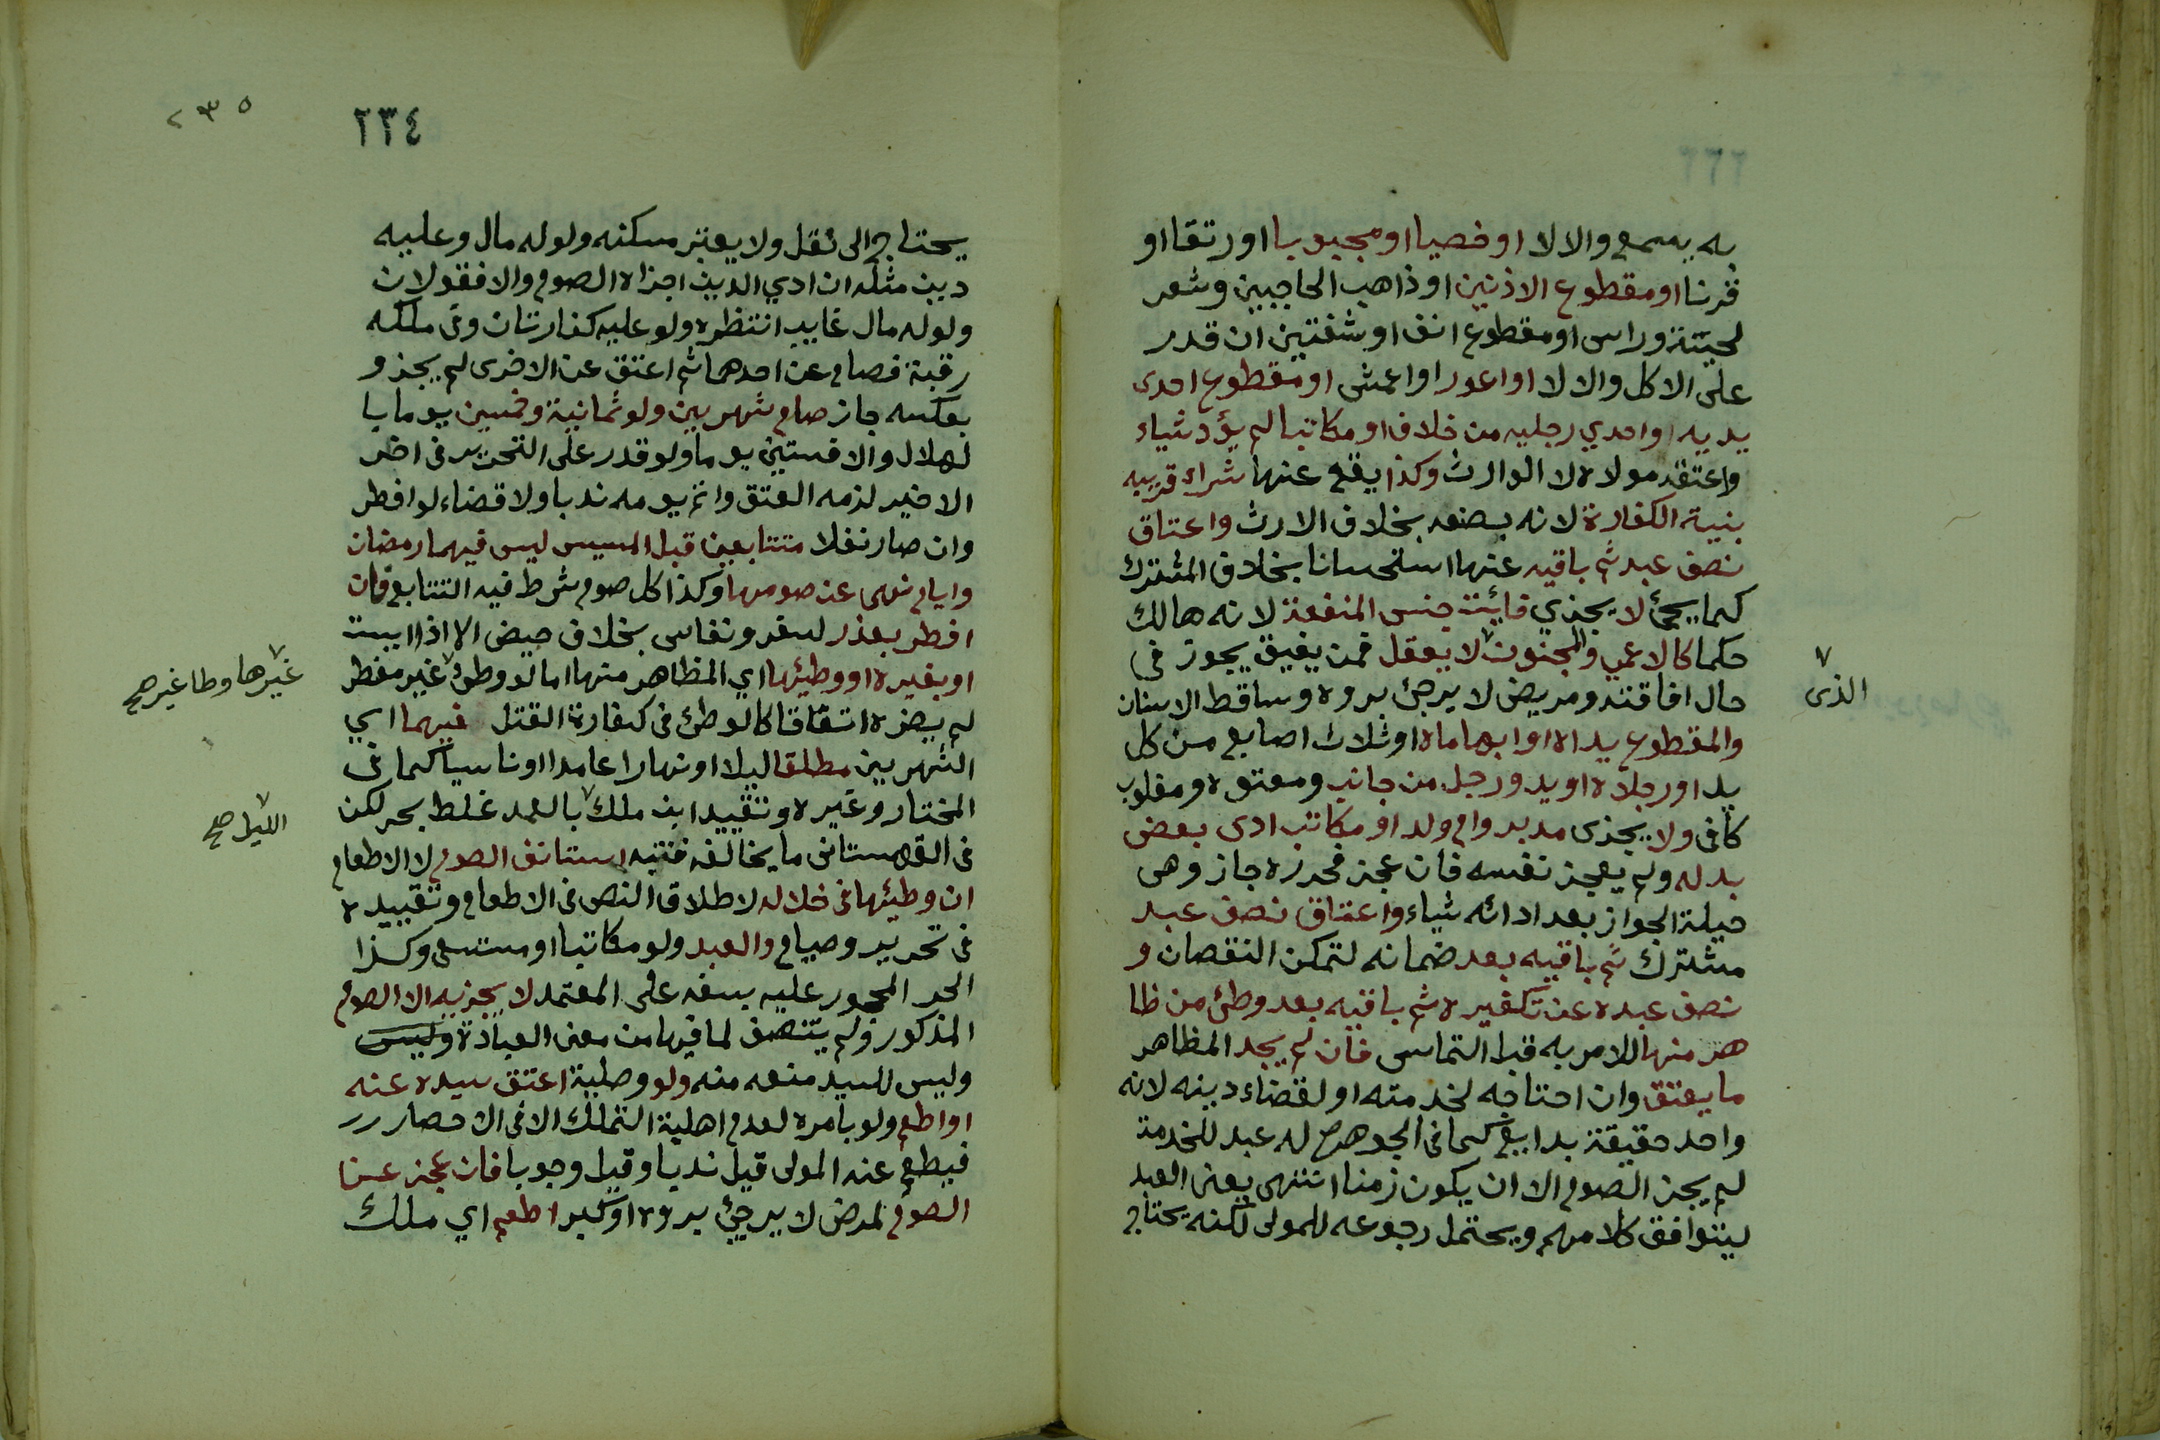 به يسمع والا لا او خصيا او مجبوبا او رتقا او
قرنا او مقطوع الاذنين او ذاهب الحاجبين وشعر
لحيتة وراس او مقطوع انف او شفتين ان قدر
على الاكل والا لا او اعور او اعمش او مقطوع احدى
يديه او احدي رجليه من خلاف او مكاتبا لم يؤد شياء
واعتقه مولاه لا الوارث وكذا يقع عنها شراء قريبه
بنية الكفارة لانه بصنعه بخلاف الارث واعتاق
نصف عبد ثم باقيه عنها استحسانا بخلاف المشترك
كما يجئ لا يجذي فائت جنس المنفعة لانه هالك
حكما كالاعمي والمجنون لا يعقل فمن يفيق يجوز في
الذى
حال افاقته ومريض لا يرجئ بروه وساقط الاسنان
والمقطوع يداه او ابهاماه او ثلاث اصابع من كل
يد او رجلاه او يد ورجل من جانب ومعتوه ومغلوب
كافى ولا يجذى مدبر وام ولد او مكاتب ادى بعض
بدله ولم يعجز نفسه فان عجز فحرره جاز وهى
حيلة الجواز بعد ادائه شياء واعتاق نصف عبد
مشترك ثم باقيه بعد ضمانه لتمكن النقصان و
نصف عبده عن تكفيره ثم باقيه بعد وطئ من ظا
هر منها للامر به قبل التماس فان لم يجد المظاهر
ما يعتق وان احتاجه لخدمته او لقضاء دينه لانه
واحد حقيقة بدايع كما فى الجوهرة له عبد للخدمة
لم يجز الصوم الا ان يكون زمنا انتهى يعنى العبد
ليتوافق كلامهم ويحتمل رجوعه للمولى لكنه يحتاج
يحتاج
٢٣٥
٢٣٤
يحتاج الى نقل ولا يعتبر مسكنه ولو له مال وعليه
دين مثله ان ادي الدين اجزاه الصوم والا فقولان
ولو له مال غايب انتظره ولو عليه كفارتان وفى ملكه
رقبة فصام عن احدهما ثم اعتق عن الاخرى لم يجذ و
بعكسه جاز صام شهرين ولو ثمانية وخمسين يوما با
لهلال والا فستين يوما ولو قدر على التحرير فى اخر
الاخير لزمه العتق واتم يومه ندبا ولا قضاء لو افطر
وان صار نفلا متتابعين قبل المسيس ليس فيهما رمضان
وايام نهى عن صومها وكذا كل صوم شرط فيه التتابع فان
افطر بعذر لسفر ونفاس بخلاف حيض الا اذا ايست
او بغيره او وطيئها اي المظاهر منها اما لو وطئ غير مفطر
غيرها وطا غير صح
لم يضره اتفاقا كالوطئ فى كفارة القتل فيهما اي
الشهرين مطلقا ليلا او نهارا عامدا او ناسيا كما فى
المختار وغيره وتقييد ابن ملك بالعمد غلط بحر لكن
الليل صح
فى القهستانى ما يخالفه فتنبه استانف الصوم لا الاطعام
ان وطيئها فى خلاله لاطلاق النص فى الاطعام وتقييده
فى تحرير وصيام والعبد ولو مكاتبا او مستسعى وكذا
الحر المحجور عليه بسفه على المعتمد لا يجزيه الا الصوم
المذكور ولم يتنصف لما فيها من معنى العبادة وليس
وليس للسيد منعه منه ولو وصلية اعتق سيده عنه
او اطعم ولو بامره لعدم اهلية التملك الا فى الاحصار
فيطعم عنه المولى قيل ندبا وقيل وجوبا فان عجز عن
الصوم لمرض لا يرجئ بروه او كبر اطعم اي ملك